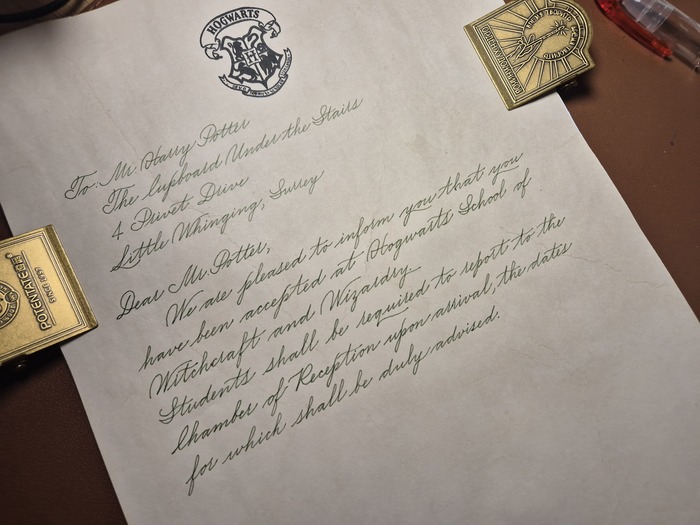 HOGWARTS
H
To: Mr. Harry Potter
The Cupboard Under the Stairs
4 Privet Drive
Little Whinging, Surrey
Dear Mr. Potter,
We are pleased to inform you that you
have been accepted at Hogwarts School of
Witchcraft and Wizardry
Students shall be required to report to the
Chamber of Reception upon arrival, the dates
for which shall be duly advised.
POTENTATE
SINCE